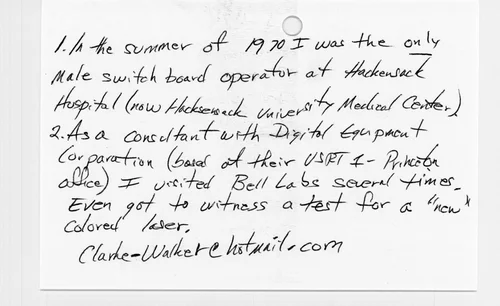 1. In the summer of 1970 I was the only
male switch board operator at Hackensack
Hospital (now Hackensack University Medical Center)
2. As a consultant with Digital Equpment
Corparation (based at their US RT 1 - Princeton
office) I visited Bell Labs several times.
Even got to witness a test for a "new"
colored laser.
Clarke-Walker@hotmail.com